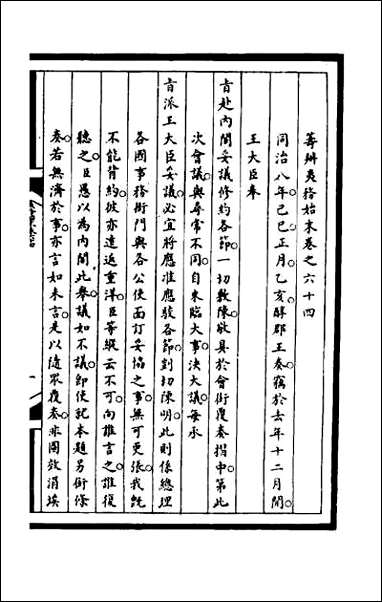 籌辦夷務始末卷之六十四
同治八年己巳正月乙亥醇郡王奏竊於去年十二月間
王大臣奉
旨赴內閣妥議修約各節一切敷陳敬具於會銜覆奏摺中第此
次會議與尋常不同自來臨大事決大議每承
旨派王大臣妥議必宜將應准應駁各節剴切陳明此則係總理
各國事務衙門與各公使面訂妥協之事無可更張我既
不能背約彼亦遠返重洋臣等縱云不可向誰言之誰復
聽之臣愚以為內閣此舉議如不議即使記本題另銜條
奏若無濟於事亦言如未言是以隨眾覆奏非關欲涓埃